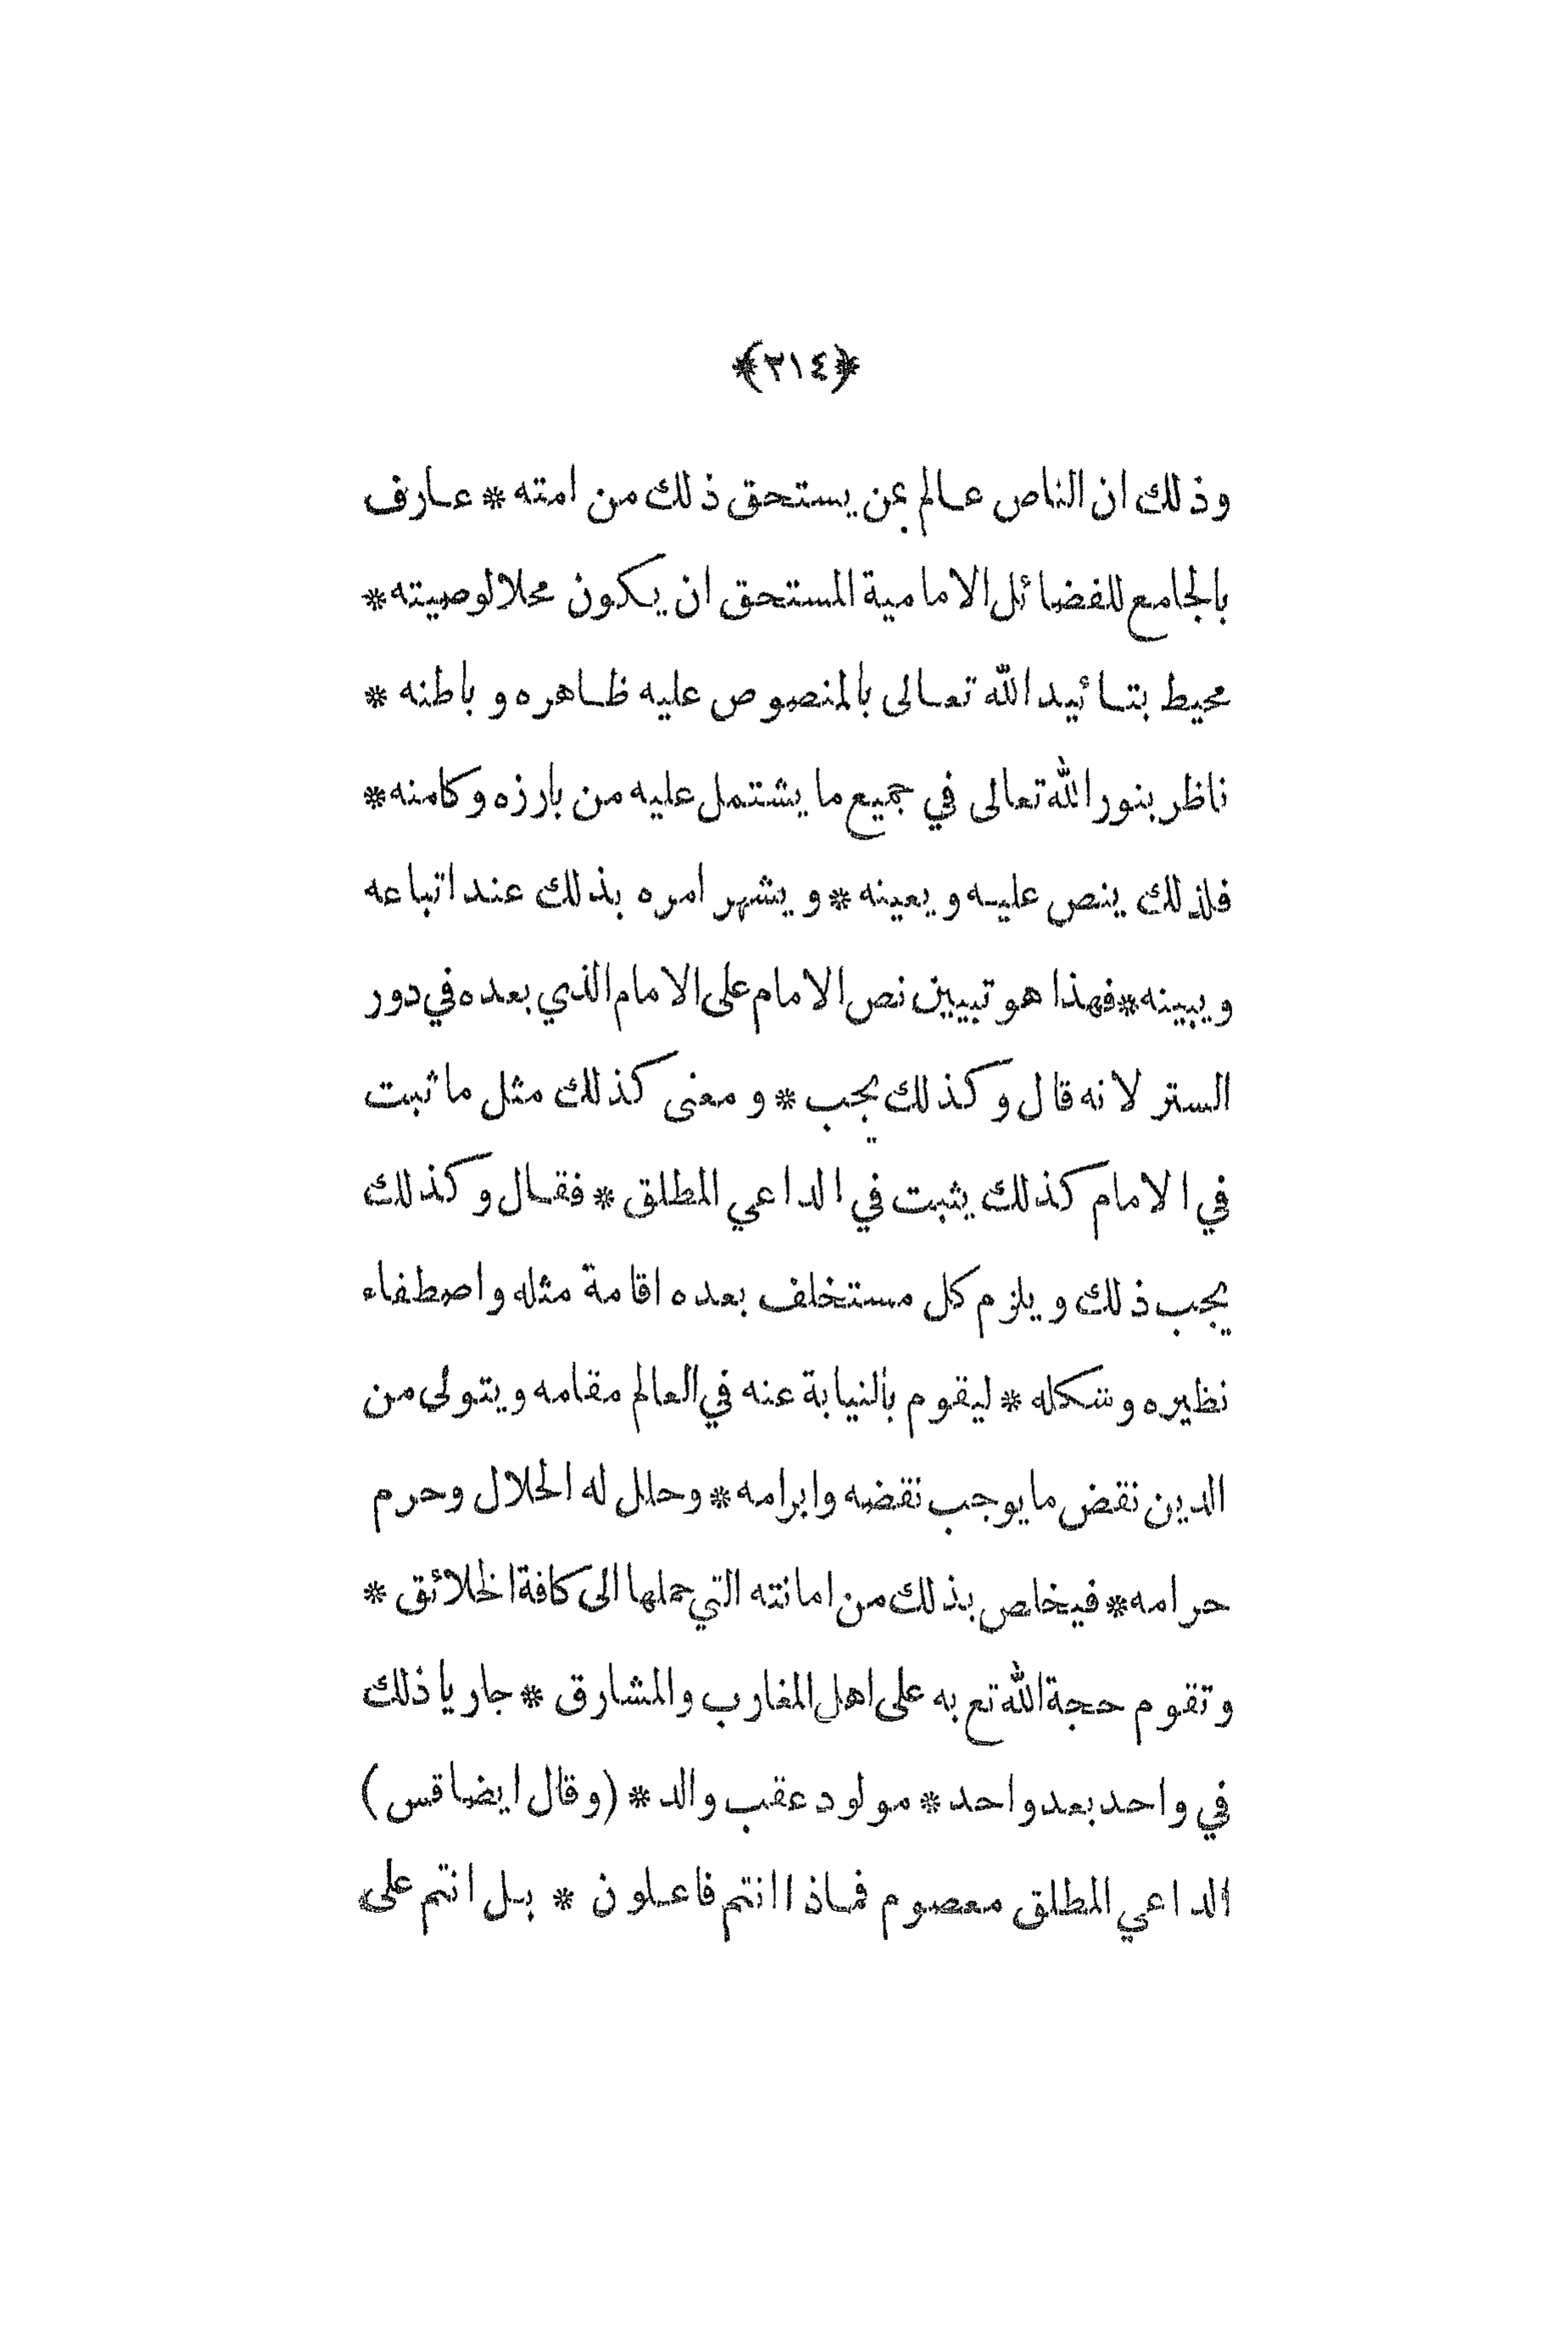 ﴿٣١٤﴾
وذلك ان الناص عالم بمن يستحق ذلك من امته * عارف
بالجامع للفضائل الامامية المستحق ان يكون محلا لوصيته *
محيط بتائيد الله تعالى بالمنصوص عليه ظاهره و باطنه *
ناظر بنور الله تعالى في جميع ما يشتمل عليه من بارزه وكامنه *
فلذلك ينص عليه و يعينه * و يشهر امره بذلك عند اتباعه
و يبينه * فهذا هو تبيين نص الامام على الامام الذي بعده في دور
الستر لانه قال وكذلك يجب * و معنى كذلك مثل ما ثبت
في الامام كذلك يثبت في الداعي المطلق * فقال وكذلك
يجب ذلك و يلزم كل مستخلف بعده اقامة مثله واصطفاء
نظيره وشكله * ليقوم بالنيابة عنه في العالم مقامه ويتولى من
الدين نقض ما يوجب نقضه وابرامه * وحلل له الحلال وحرم
حرامه * فيخلص بذلك من امانته التي حملها الى كافة الخلائق *
وتقوم حجة الله تع به على اهل المغارب والمشارق * جاريا ذلك
في واحد بعد واحد * مولود عقب والد * (وقال ايضا قس)
الداعي المطلق معصوم فماذا انتم فاعلون * بل انتم على